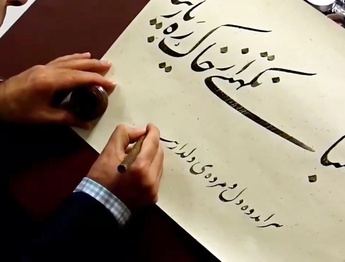 صبا نکهتی از خاک ره یار
ببر اندوه دل و مژده‌ی دلدار